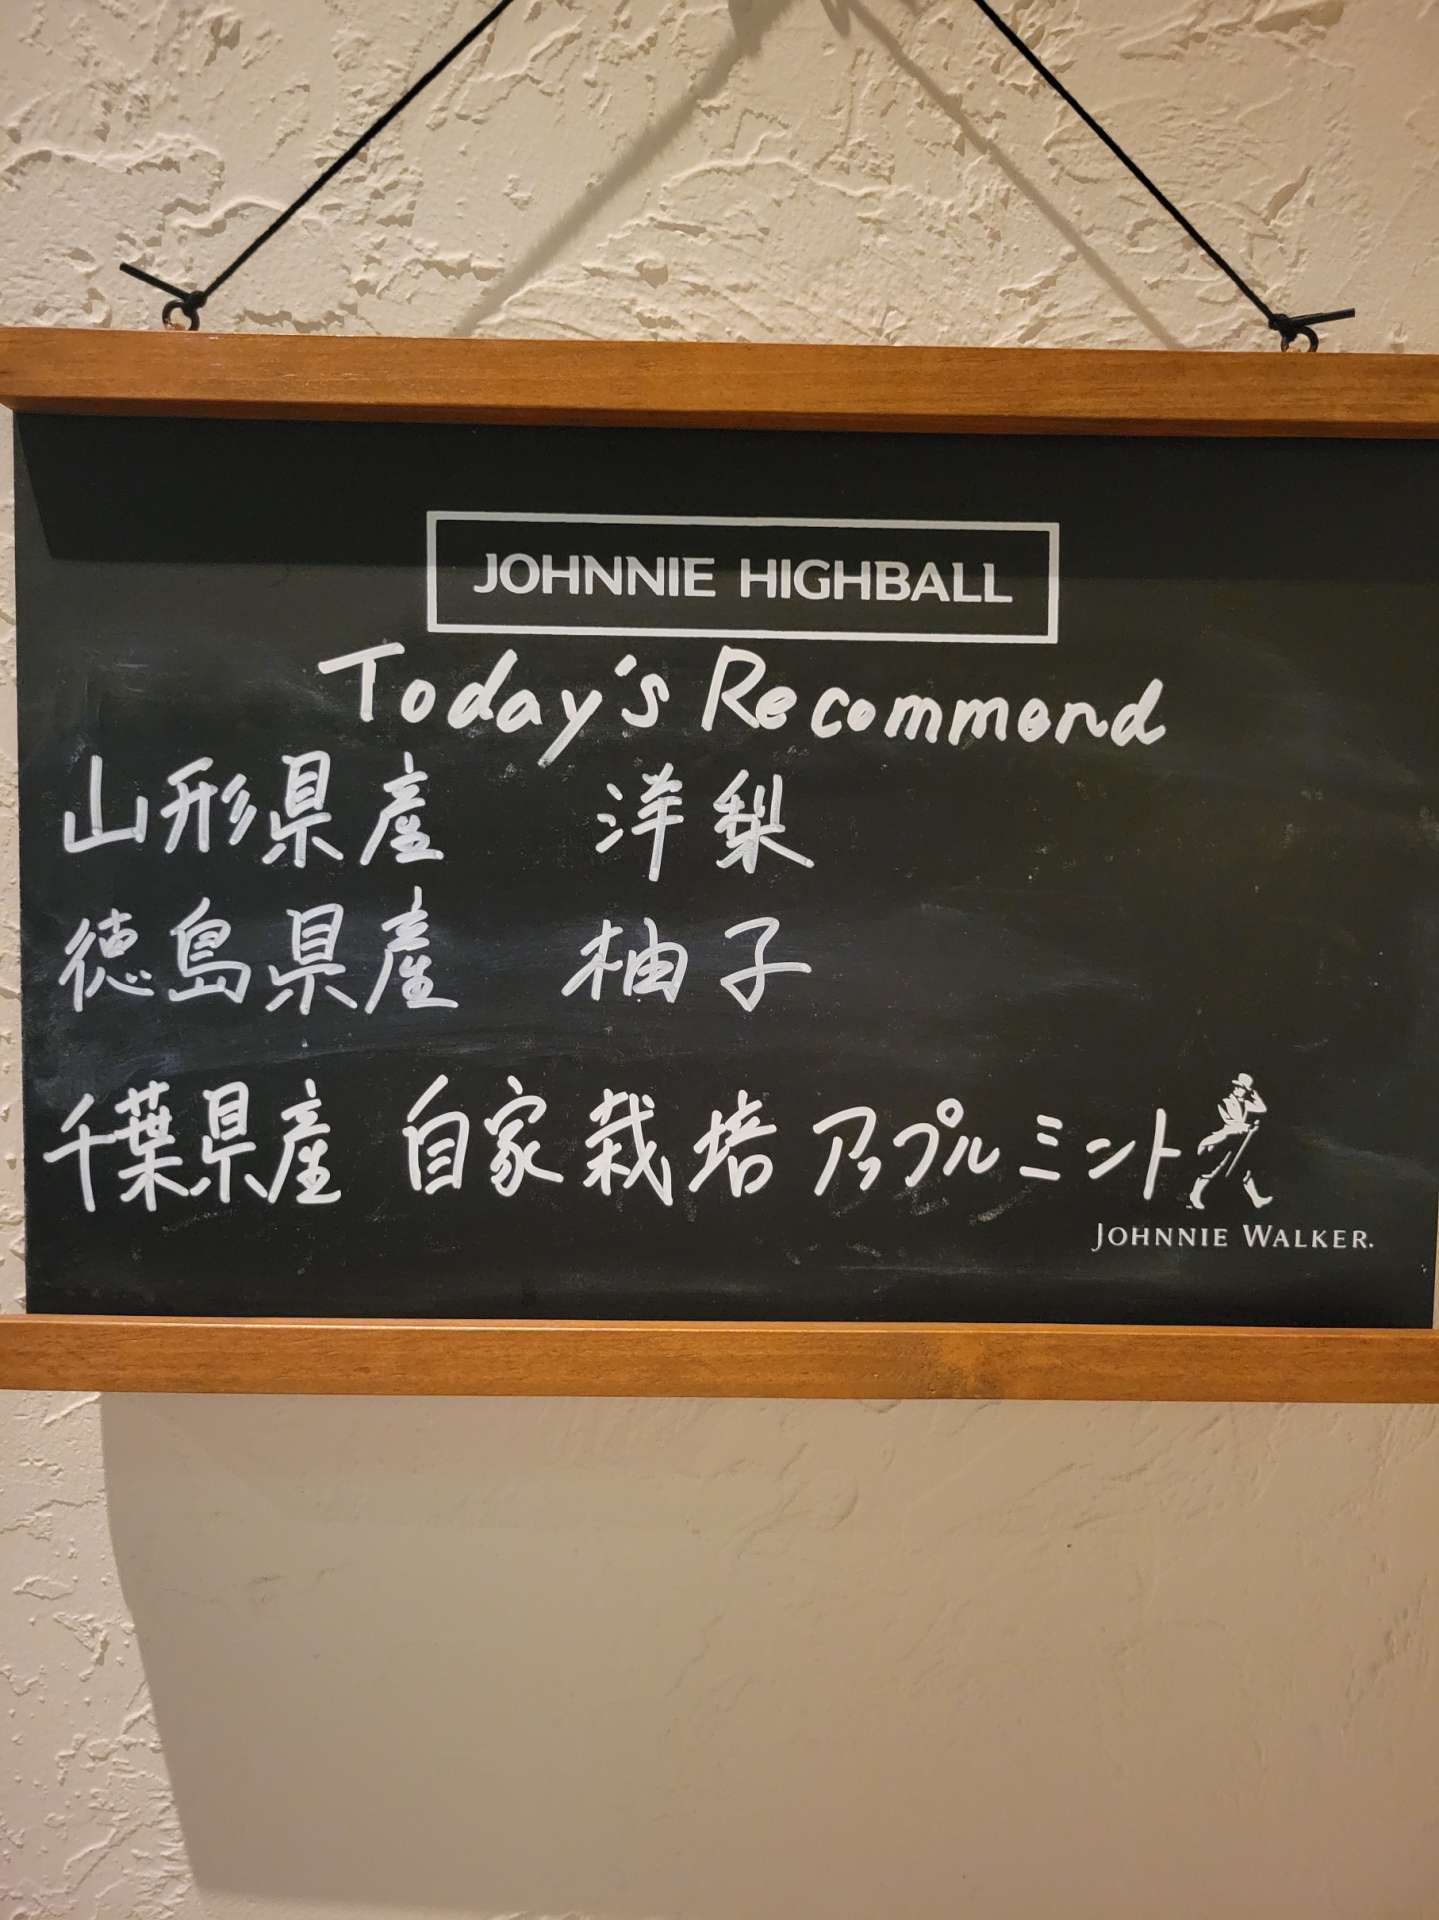 JOHNNIE HIGHBALL
Today's Recommend
山形県産 洋梨
徳島県産 柚子
千葉県産 自家栽培アップルミント
JOHNNIE WALKER.